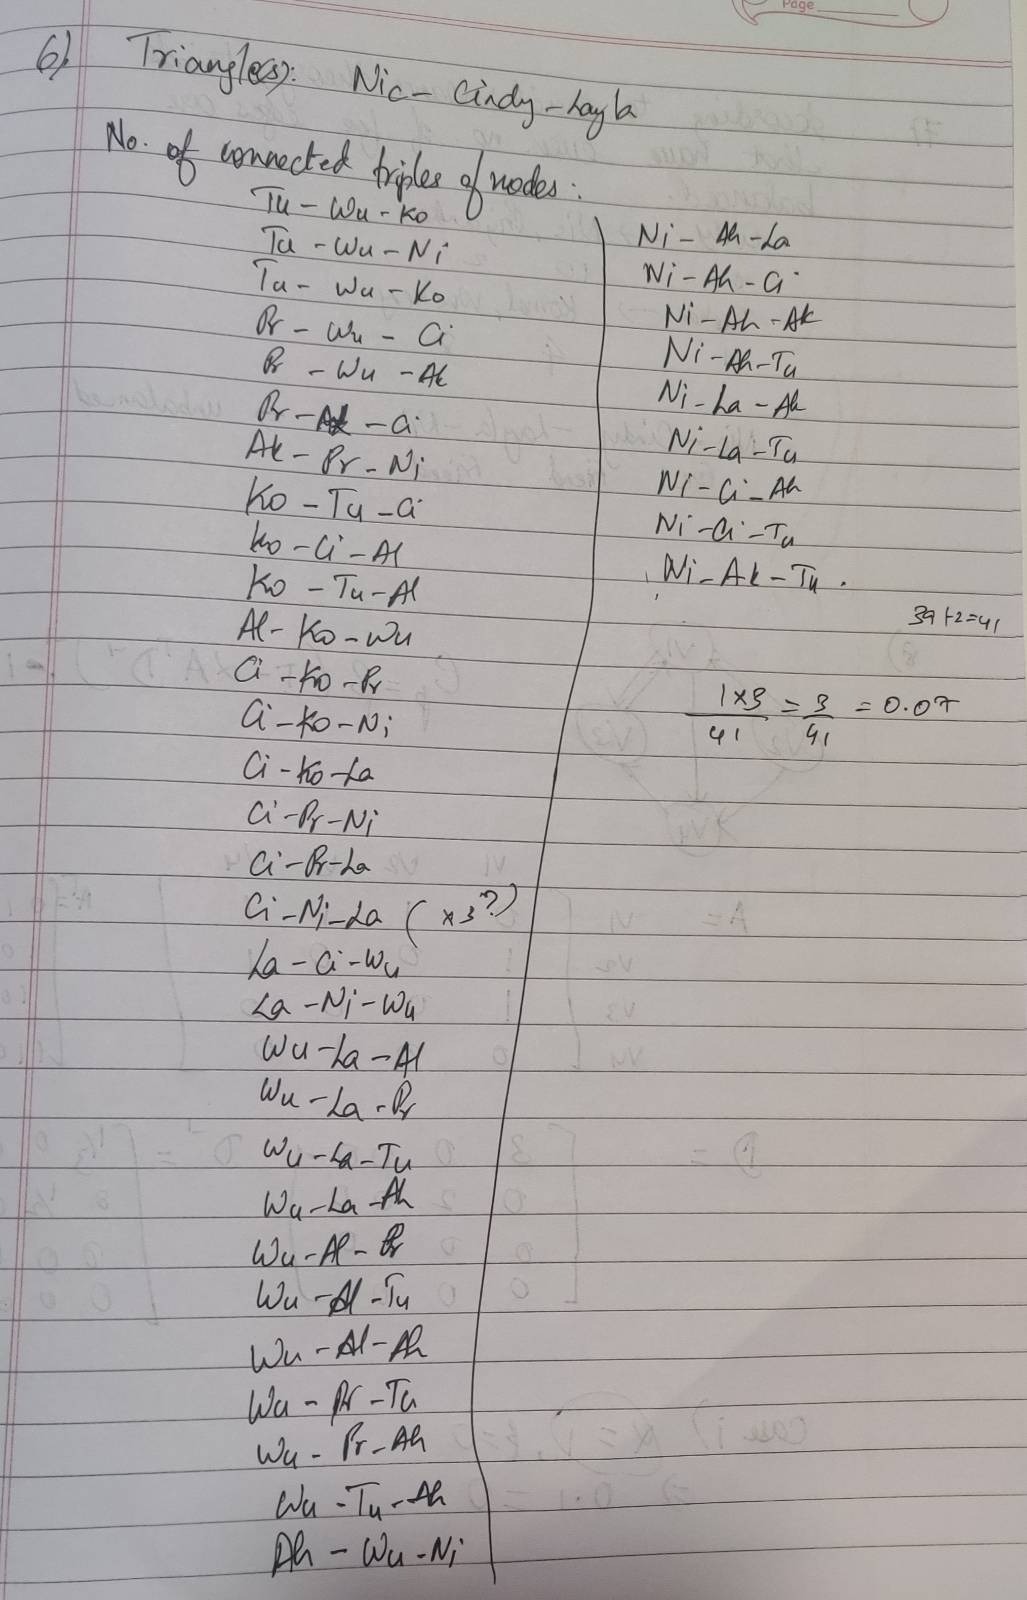 Page
6) Triangle(s): Nic - Cindy - Layla
No. of connected triples of nodes:
Tu - Wu - Ko
Tu - Wu - Ni
Tu - Wu - Ko
Pr - Wu - Ci
Pr - Wu - Ak
Pr - Ak - Ci
Ak - Pr - Ni
Ko - Tu - Ci
Ko - Ci - Al
Ko - Tu - Al
Al - Ko - Wu
Ci - Ko - Pr
Ci - Ko - Ni
Ci - Ko - La
Ci - Pr - Ni
Ci - Pr - La
Ci - Ni - La (x3?)
La - Ci - Wu
La - Ni - Wu
Wu - La - Al
Wu - La - Pr
Wu - La - Tu
Wu - La - Ah
Wu - Al - Pr
Wu - Al - Tu
Wu - Al - Ah
Wu - Pr - Tu
Wu - Pr - Ah
Wu - Tu - Ah
Ah - Wu - Ni
Ni - Ah - La
Ni - Ah - Ci
Ni - Ah - Ak
Ni - Ah - Tu
Ni - La - Ak
Ni - La - Tu
Ni - Ci - Ah
Ni - Ci - Tu
Ni - Ak - Tu.
39+2=41
1x3/41 = 3/41 = 0.07